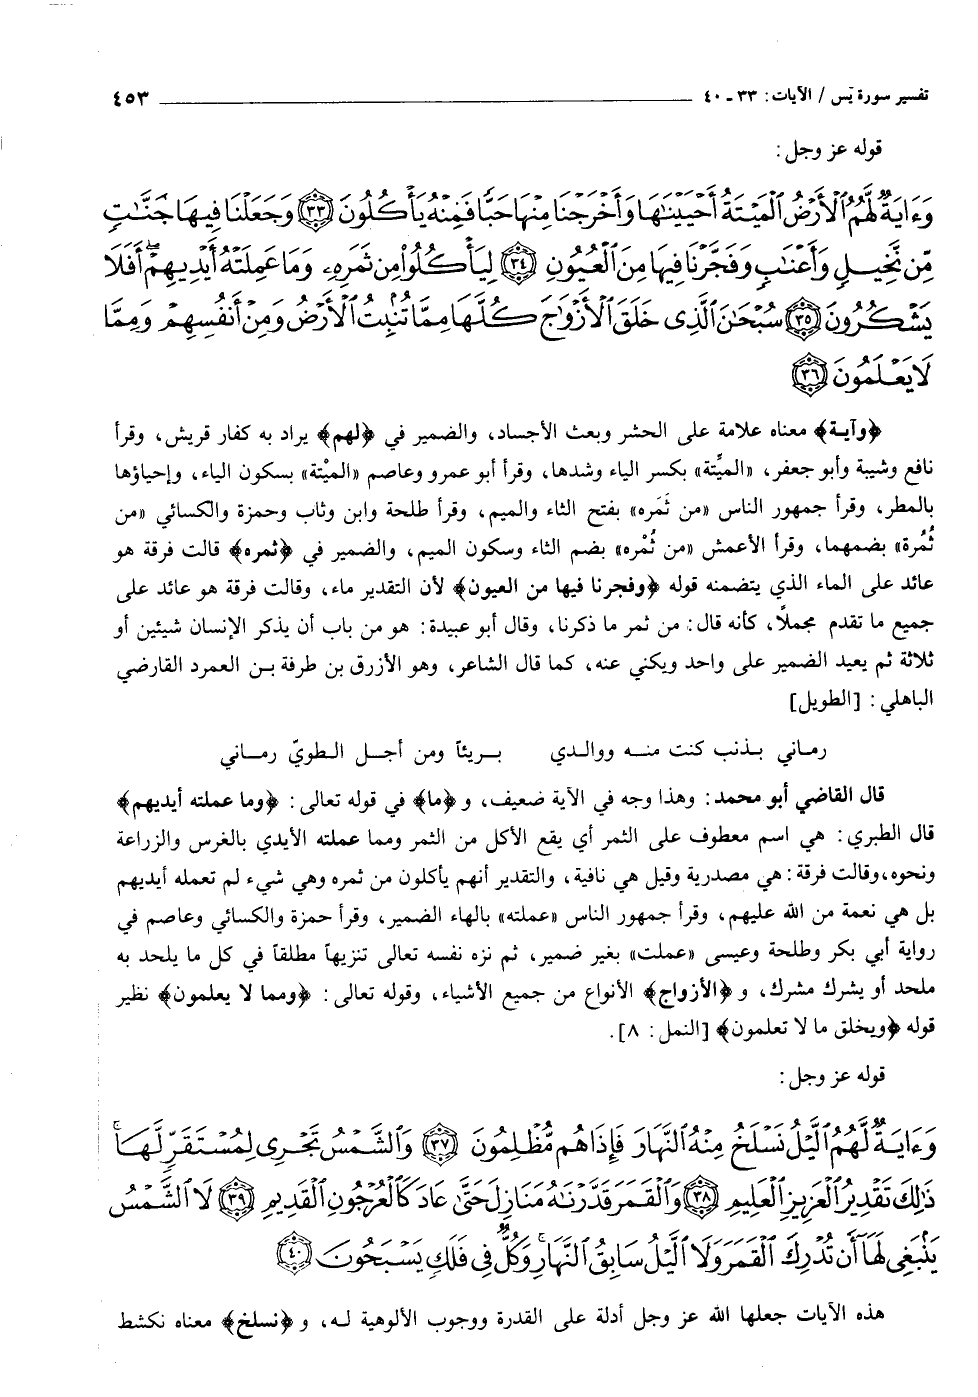 تفسير سورة يٓس / الآيات: ٣٣ ـ ٤٠ ٤٥٣
قوله عز وجل:
وَءَايَةٌ لَّهُمُ ٱلْأَرْضُ ٱلْمَيْتَةُ أَحْيَيْنَٰهَا وَأَخْرَجْنَا مِنْهَا حَبًّا فَمِنْهُ يَأْكُلُونَ ﴿٣٣﴾ وَجَعَلْنَا فِيهَا جَنَّٰتٍ
مِّن نَّخِيلٍ وَأَعْنَٰبٍ وَفَجَّرْنَا فِيهَا مِنَ ٱلْعُيُونِ ﴿٣٤﴾ لِيَأْكُلُوا۟ مِن ثَمَرِهِۦ وَمَا عَمِلَتْهُ أَيْدِيهِمْ ۖ أَفَلَا
يَشْكُرُونَ ﴿٣٥﴾ سُبْحَٰنَ ٱلَّذِى خَلَقَ ٱلْأَزْوَٰجَ كُلَّهَا مِمَّا تُنۢبِتُ ٱلْأَرْضُ وَمِنْ أَنفُسِهِمْ وَمِمَّا
لَا يَعْلَمُونَ ﴿٣٦﴾
﴿وآية﴾ معناه علامة على الحشر وبعث الأجساد، والضمير في ﴿لهم﴾ يراد به كفار قريش، وقرأ
نافع وشيبة وأبو جعفر، «الميِّتة» بكسر الياء وشدها، وقرأ أبو عمرو وعاصم «الميْتة» بسكون الياء، وإحياؤها
بالمطر، وقرأ جمهور الناس «من ثَمَره» بفتح الثاء والميم، وقرأ طلحة وابن وثاب وحمزة والكسائي «من
ثُمُرة» بضمهما، وقرأ الأعمش «من ثُمْره» بضم الثاء وسكون الميم، والضمير في ﴿ثمره﴾ قالت فرقة هو
عائد على الماء الذي يتضمنه قوله ﴿وفجرنا فيها من العيون﴾ لأن التقدير ماء، وقالت فرقة هو عائد على
جميع ما تقدم مجملاً، كأنه قال: من ثمر ما ذكرنا، وقال أبو عبيدة: هو من باب أن يذكر الإنسان شيئين أو
ثلاثة ثم يعيد الضمير على واحد ويكني عنه، كما قال الشاعر، وهو الأزرق بن طرفة بـن العمرد القارضي
الباهلي: [الطويل]
رماني بـذنب كنت منـه ووالـدي بـريئاً ومن أجـل الـطويّ رمـاني
قال القاضي أبو محمد: وهذا وجه في الآية ضعيف، و ﴿ما﴾ في قوله تعالى: ﴿وما عملته أيديهم﴾
قال الطبري: هي اسم معطوف على الثمر أي يقع الأكل من الثمر ومما عملته الأيدي بالغرس والزراعة
ونحوه، وقالت فرقة: هي مصدرية وقيل هي نافية، والتقدير أنهم يأكلون من ثمره وهي شيء لم تعمله أيديهم
بل هي نعمة من الله عليهم، وقرأ جمهور الناس «عملته» بالهاء الضمير، وقرأ حمزة والكسائي وعاصم في
رواية أبي بكر وطلحة وعيسى «عملت» بغير ضمير، ثم نزه نفسه تعالى تنزيهاً مطلقاً في كل ما يلحد به
ملحد أو يشرك مشرك، و ﴿الأزواج﴾ الأنواع من جميع الأشياء، وقوله تعالى: ﴿ومما لا يعلمون﴾ نظير
قوله ﴿ويخلق ما لا تعلمون﴾ [النمل: ٨].
قوله عز وجل:
وَءَايَةٌ لَّهُمُ ٱلَّيْلُ نَسْلَخُ مِنْهُ ٱلنَّهَارَ فَإِذَا هُم مُّظْلِمُونَ ﴿٣٧﴾ وَٱلشَّمْسُ تَجْرِى لِمُسْتَقَرٍّ لَّهَا ۚ
ذَٰلِكَ تَقْدِيرُ ٱلْعَزِيزِ ٱلْعَلِيمِ ﴿٣٨﴾ وَٱلْقَمَرَ قَدَّرْنَٰهُ مَنَازِلَ حَتَّىٰ عَادَ كَٱلْعُرْجُونِ ٱلْقَدِيمِ ﴿٣٩﴾ لَا ٱلشَّمْسُ
يَنۢبَغِى لَهَآ أَن تُدْرِكَ ٱلْقَمَرَ وَلَا ٱلَّيْلُ سَابِقُ ٱلنَّهَارِ ۚ وَكُلٌّ فِى فَلَكٍ يَسْبَحُونَ ﴿٤٠﴾
هذه الآيات جعلها الله عز وجل أدلة على القدرة ووجوب الألوهية لـه، و ﴿نسلخ﴾ معناه نكشط